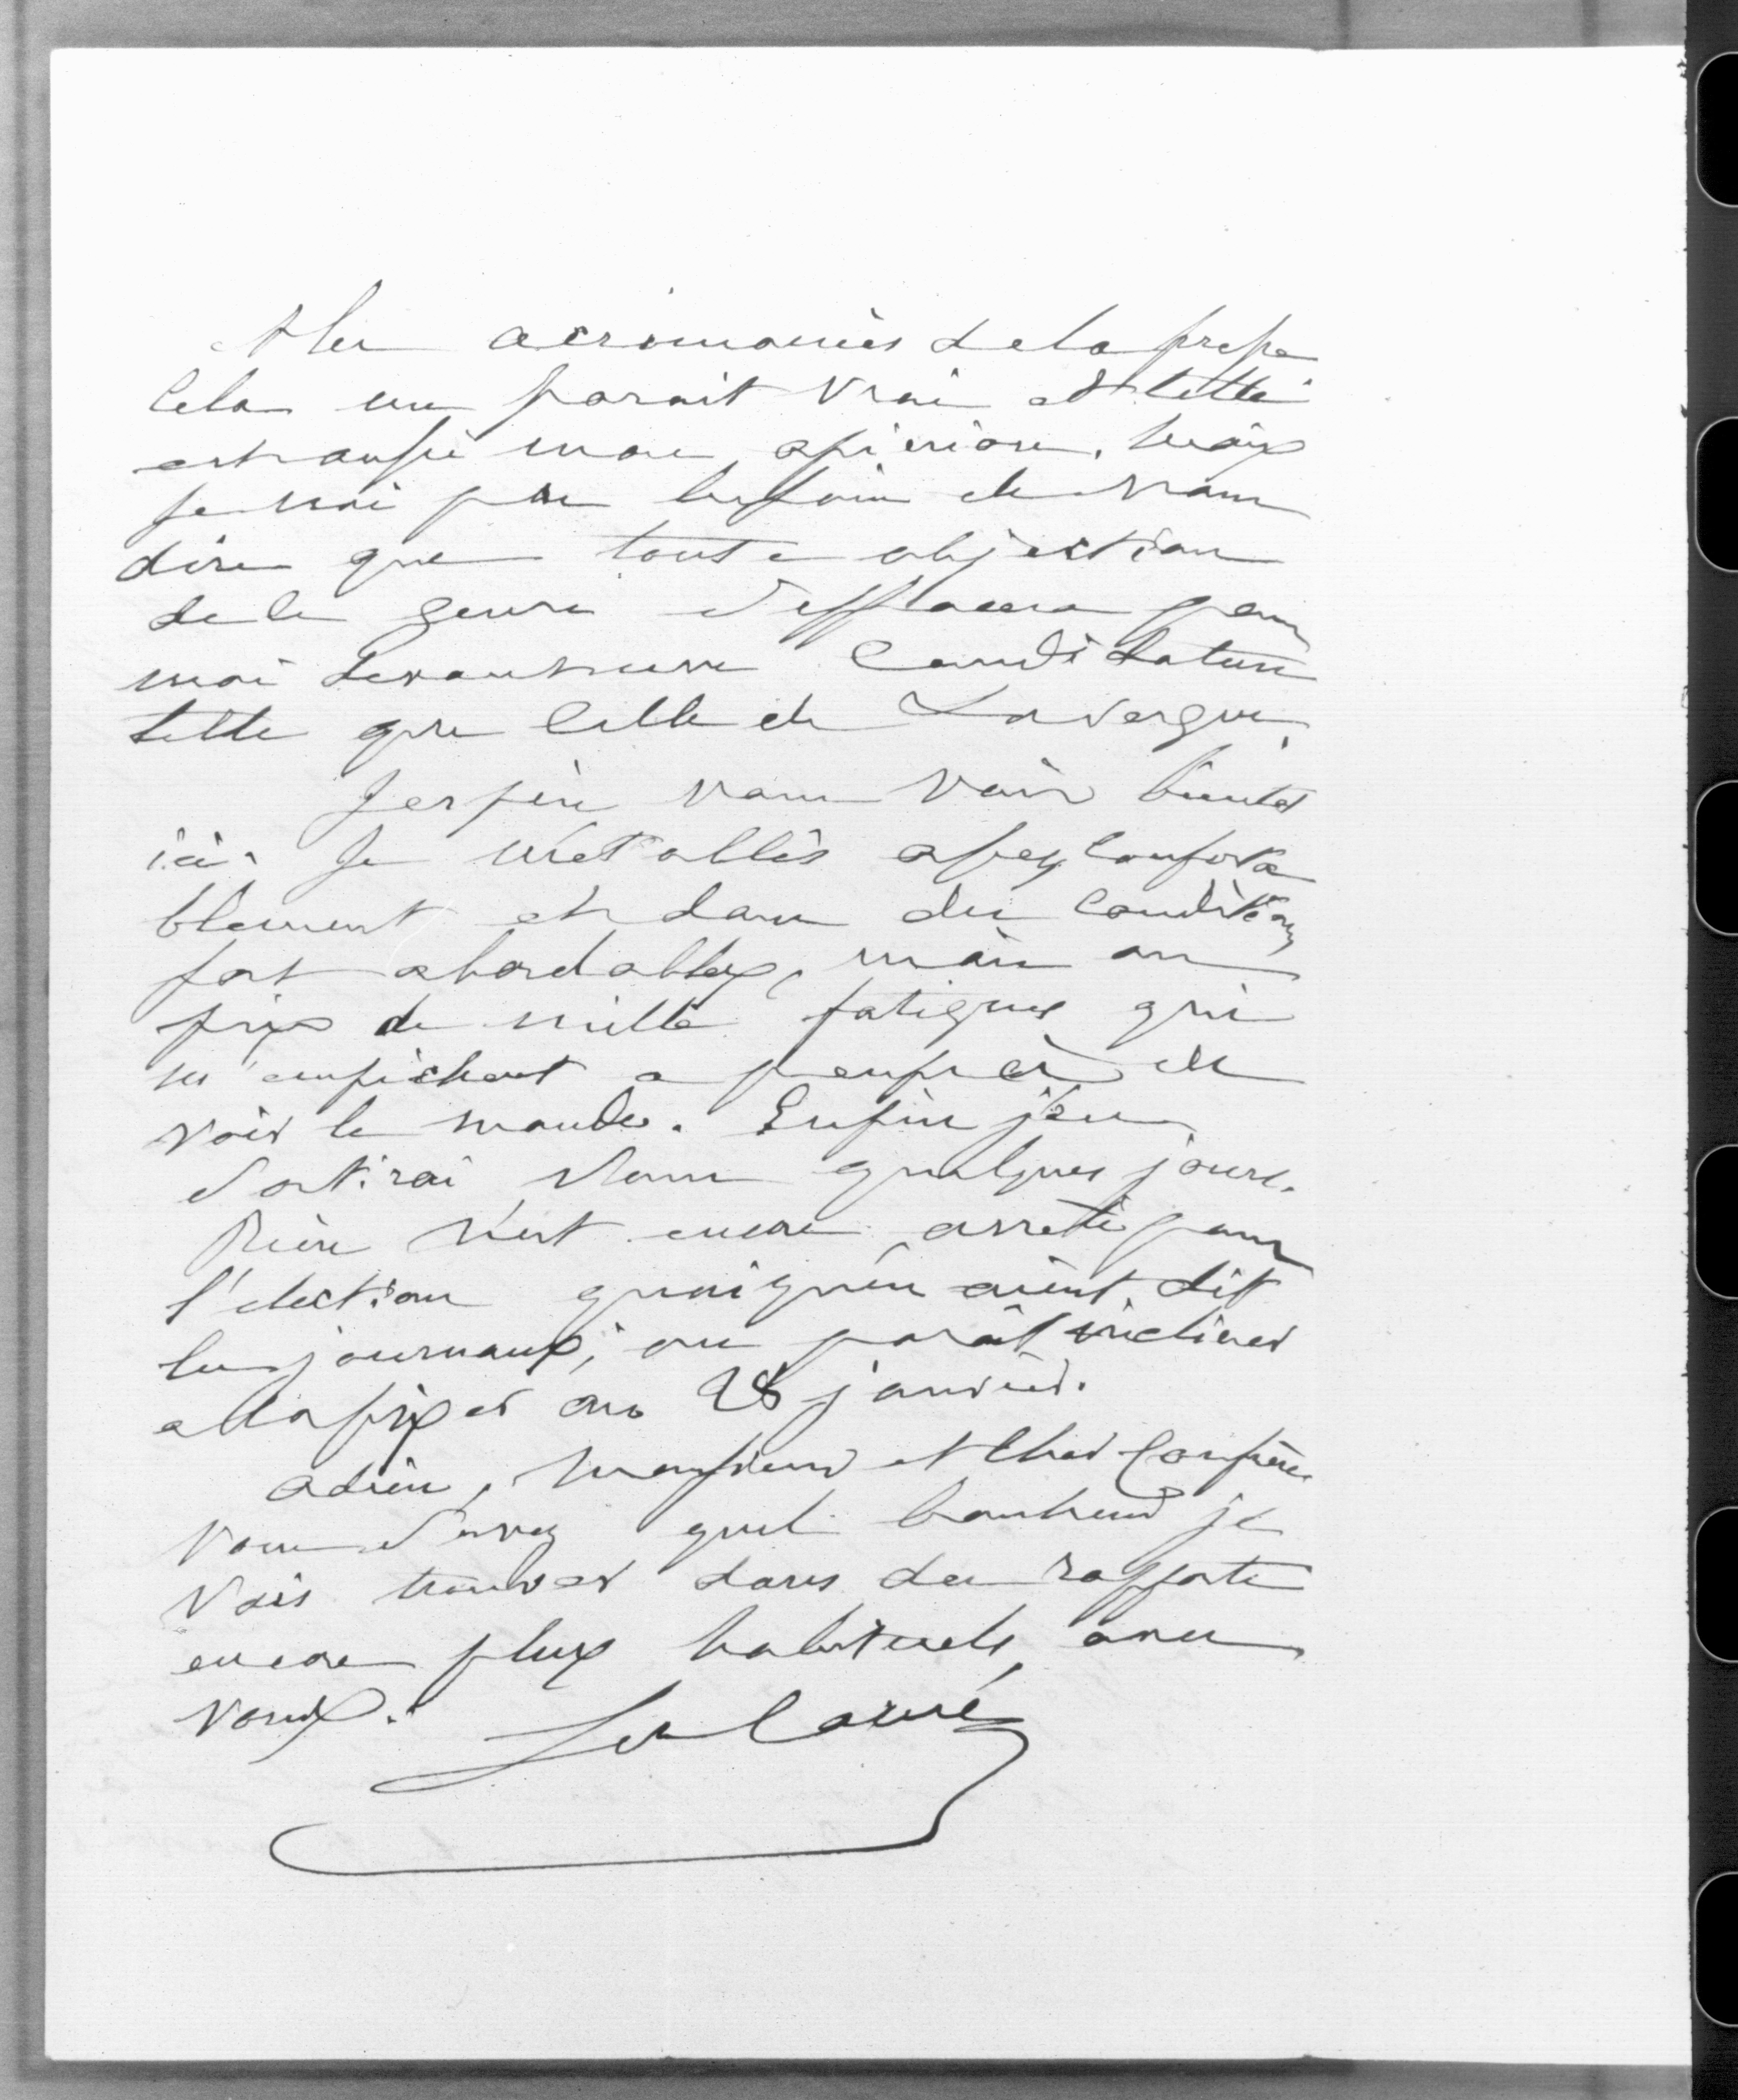 et les acrimonies de la presse
cela me parait vrai et telle
est aussi mon opinion. Mais
je nai pas besoin de vous
dire que toute objection
de ce genre s'effacera pour
moi devant une candidature
telle que celle de Lavergne.
Jespère vous voir bientot
ici. Je m'etablis assez conforta
blement et dans des conditions
fort abordables, mais au
prix de mille fatigues qui
m'empêchent a peu près de
voir le monde. Enfin j'en
sortirai dans quelques jours.
Rien n'est encore arrêté pour
l'election quoiqu'en aient dit
les journaux; on parait incliner
a la fixer au 28 janvier.
adieu, Monsieur et cher confrère
vous savez quel bonheur je
vais trouver dans des rapports
encore plus habituels avec
vous.
L de Carné